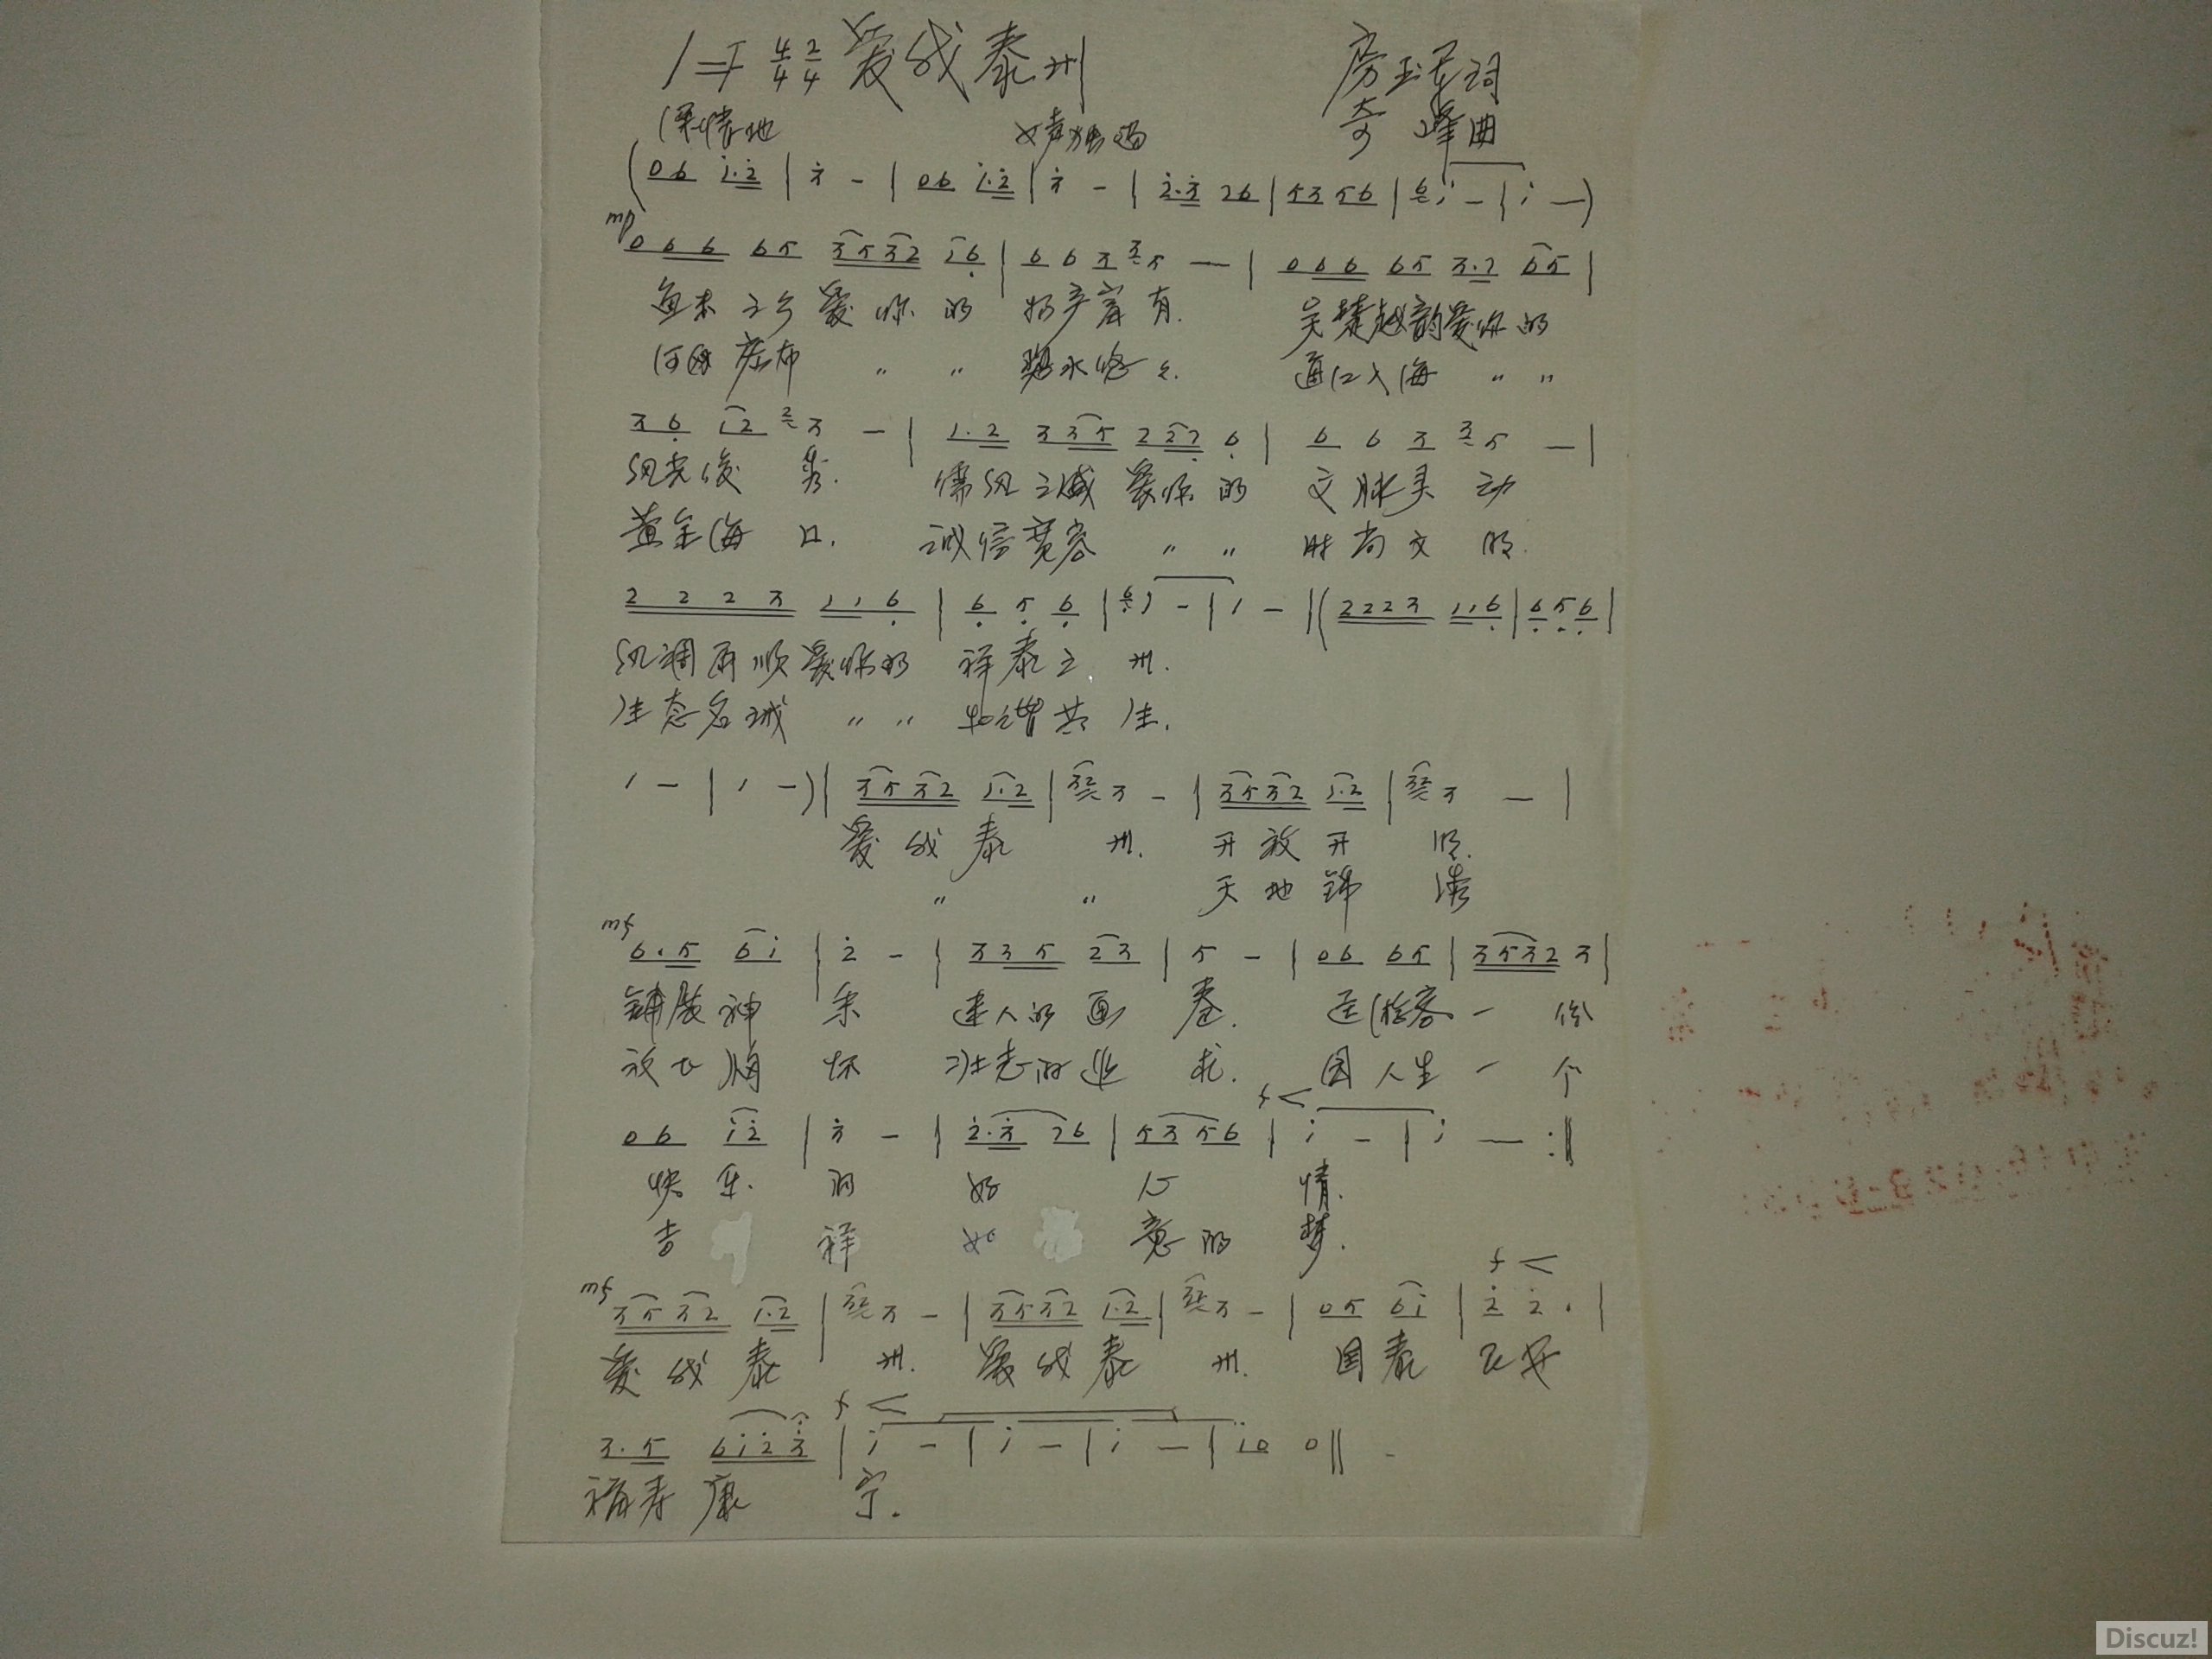 1=F 4/4 2/4 爱我泰州 房玉 词
深情地 女声独唱 奇峰曲
(06 1.2 | 3 - | 06 1.2 | 3 - | 2.3 26 | 53 56 | 6 1 - | 1 -)
mp
066 65 3532 16 | 6 6 3 3 5 - | 066 65 3.2 65 |
鱼米之乡爱你的 物产富有. 吴楚越韵爱你的
河网密布 〃 〃 碧水悠悠. 通江入海 〃 〃
36 12 2 3 - | 1.2 335 2227 6 | 6 6 3 3 5 - |
风光俊秀. 儒风之盛爱你的 文脉灵动
黄金海口. 诚信宽容 〃 〃 时尚文明.
2 2 2 3 1 1 6 | 6 5 6 | 6 1 - | 1 - |(2223 116 | 656 |
风调雨顺爱你的 祥泰之州.
生态名城 〃 〃 和谐共生.
1 - | 1 -)| 3532 1.2 | 32 3 - | 3532 1.2 | 32 3 - |
爱我泰州. 开放开明.
〃 〃 天地锦绣
mf
6.5 61 | 2 - | 335 23 | 5 - | 06 65 | 3532 3 |
铺展神采 迷人的画卷. 送游客一份
放飞胸怀 壮志的追求. 圆人生一个
f <
06 12 | 3 - | 2.3 26 | 53 56 | 1 - | 1 - :‖
快乐 的 好 心 情.
吉 祥 如 意的 梦.
mf f <
3532 1.2 | 32 3 - | 3532 1.2 | 32 3 - | 05 61 | 2 2. |
爱我泰州. 爱我泰州. 国泰民安
f <
3.5 6123 | 1 - | 1 - | 1 - | 10 0 ‖
福寿康宁.
Discuz!